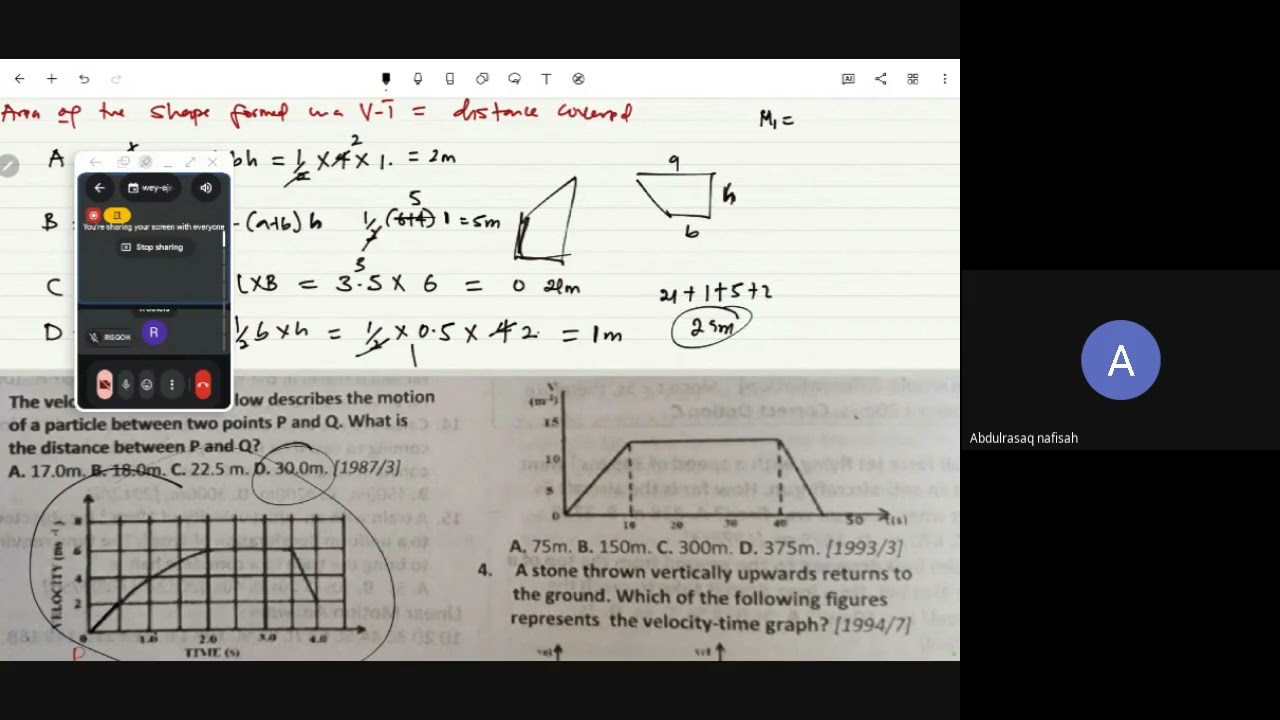 Area of the shape formed in a V-T = distance covered
M₁ =
A bh = 1/2 × 4 × 1. = 2m
2
B (a+b) h 1/2 (6+4) 1 = 5m
5
C L×B = 3.5 × 6 = 0 21m
D 1/2 b × h = 1/2 × 0.5 × 4 2 = 1m
a
h
b
21 + 1 + 5 + 2
25m
You're sharing your screen with everyone
Stop sharing
R
RISQOH
low describes the motion
of a particle between two points P and Q. What is
the distance between P and Q?
A. 17.0m. B. 18.0m. C. 22.5 m. D. 30.0m. [1987/3]
VELOCITY (ms⁻¹)
8
4
2
0 1.0 2.0 3.0 4.0
TIME (s)
P
V
(ms⁻¹)
15
10
5
0 10 20 30 40 50 t(s)
A. 75m. B. 150m. C. 300m. D. 375m. [1993/3]
4. A stone thrown vertically upwards returns to
the ground. Which of the following figures
represents the velocity-time graph? [1994/7]
A
Abdulrasaq nafisah